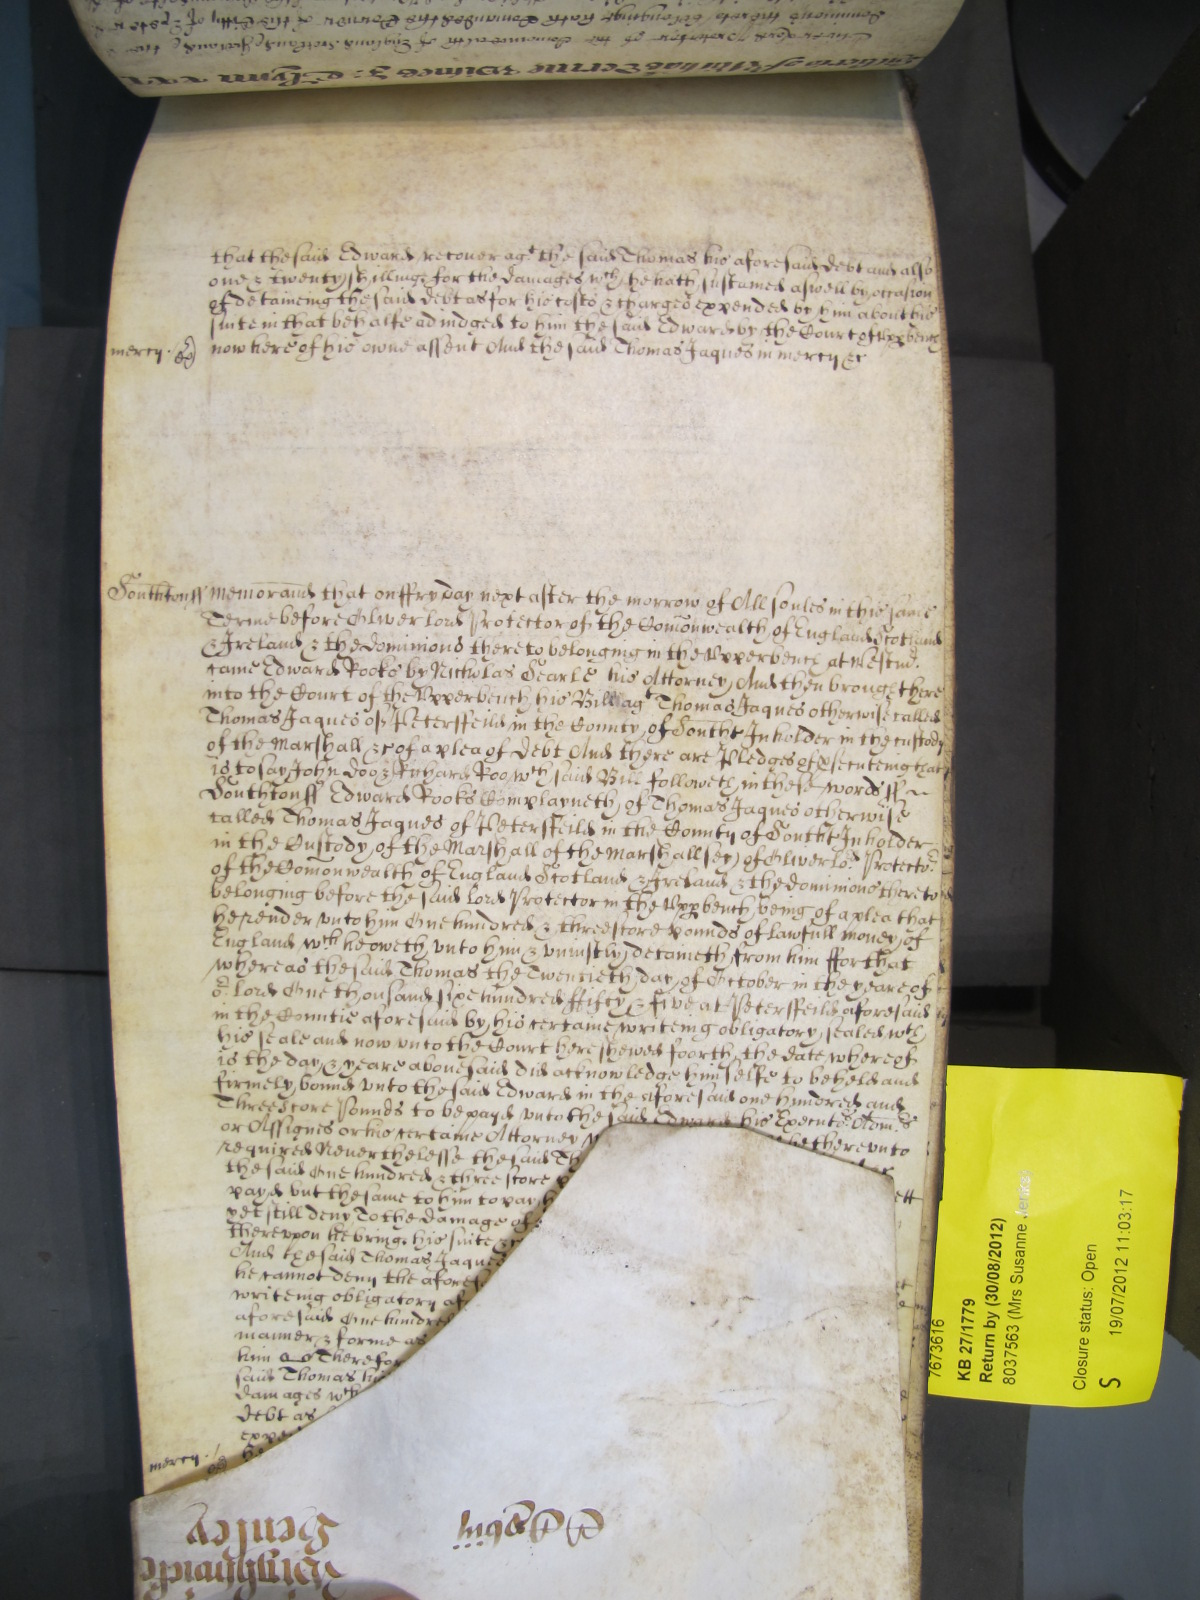 that the said Edward recover agt the said Thomas his aforesaid debt and also
one & twenty shillings for the damages wch he hath sustained aswell by occasion
of deteineing the said debt as for his costs & charges expended by him about his
suite in that behalfe adiudged to him the said Edward by the Court of Uppbench
mercy. now here of his owne assent And the said Thomas Jaques in mercy &c
Southtonss Memorand that on ffryday next after the morrow of All soules in this same
Terme before Oliver Lord Protector of the Comonwealth of England Scotland
& Ireland & the dominions thereto belonging in the Upperbench at Westmr
came Edward Rooks by Nicholas Searle his Attorney And then brought here
into the Court of the Upperbench his Bill agt Thomas Jaques otherwise called
Thomas Jaques of Petersfeild in the County of Southt Inholder in the custody
of the Marshall &c of a plea of debt And there are Pledges of prsecuteing that
is to say John Doo & Richard Roo wch said Bill followeth in these words ss
Southtonss Edward Rooks Complayneth of Thomas Jaques otherwise
called Thomas Jaques of Petersfeild in the County of Southt Inholder
in the Custody of the Marshall of the Marshallsey of Oliver Lord Protector
of the Comonwealth of England Scotland & Ireland & the dominions thereto
belonging before the said Lord Protector in the Uppbench being of a plea that
he render unto him One hundred & threescore pounds of lawfull money of
England wch he oweth unto him & uniustly detaineth from him ffor that
whereas the said Thomas the Twentieth day of October in the yeare of
or Lord One thousand sixe hundred ffifty & five at Petersfeild aforesaid
in the Countie aforesaid by his certaine writeing obligatory sealed wth
his seale and now unto the Court here shewed foorth the date whereof
is the day & yeare abovesaid did acknowledge himselfe to be held and
firmely bound unto the said Edward in the aforesaid one hundred and
Threescore Pounds to be payd unto the said Edward his Executors Admrs
or Assignes or his certaine Attorney he thereunto
required Neverthelesse the said Th
the said One hundred & threescore
payd but the same to him to pay h
yet still deny To the damage of
thereupon he brings his suite &c
And the said Thomas Jaques
he cannot deny the afores
writeing obligatory af
aforesaid One hundred
manner & forme as
him Therefor
said Thomas his
damages wch
debt as
expe
mercy.
Henley
7673616
KB 27/1779
Return by (30/08/2012)
8037563 (Mrs Susanne Jenks)
Closure status: Open
S 19/07/2012 11:03:17